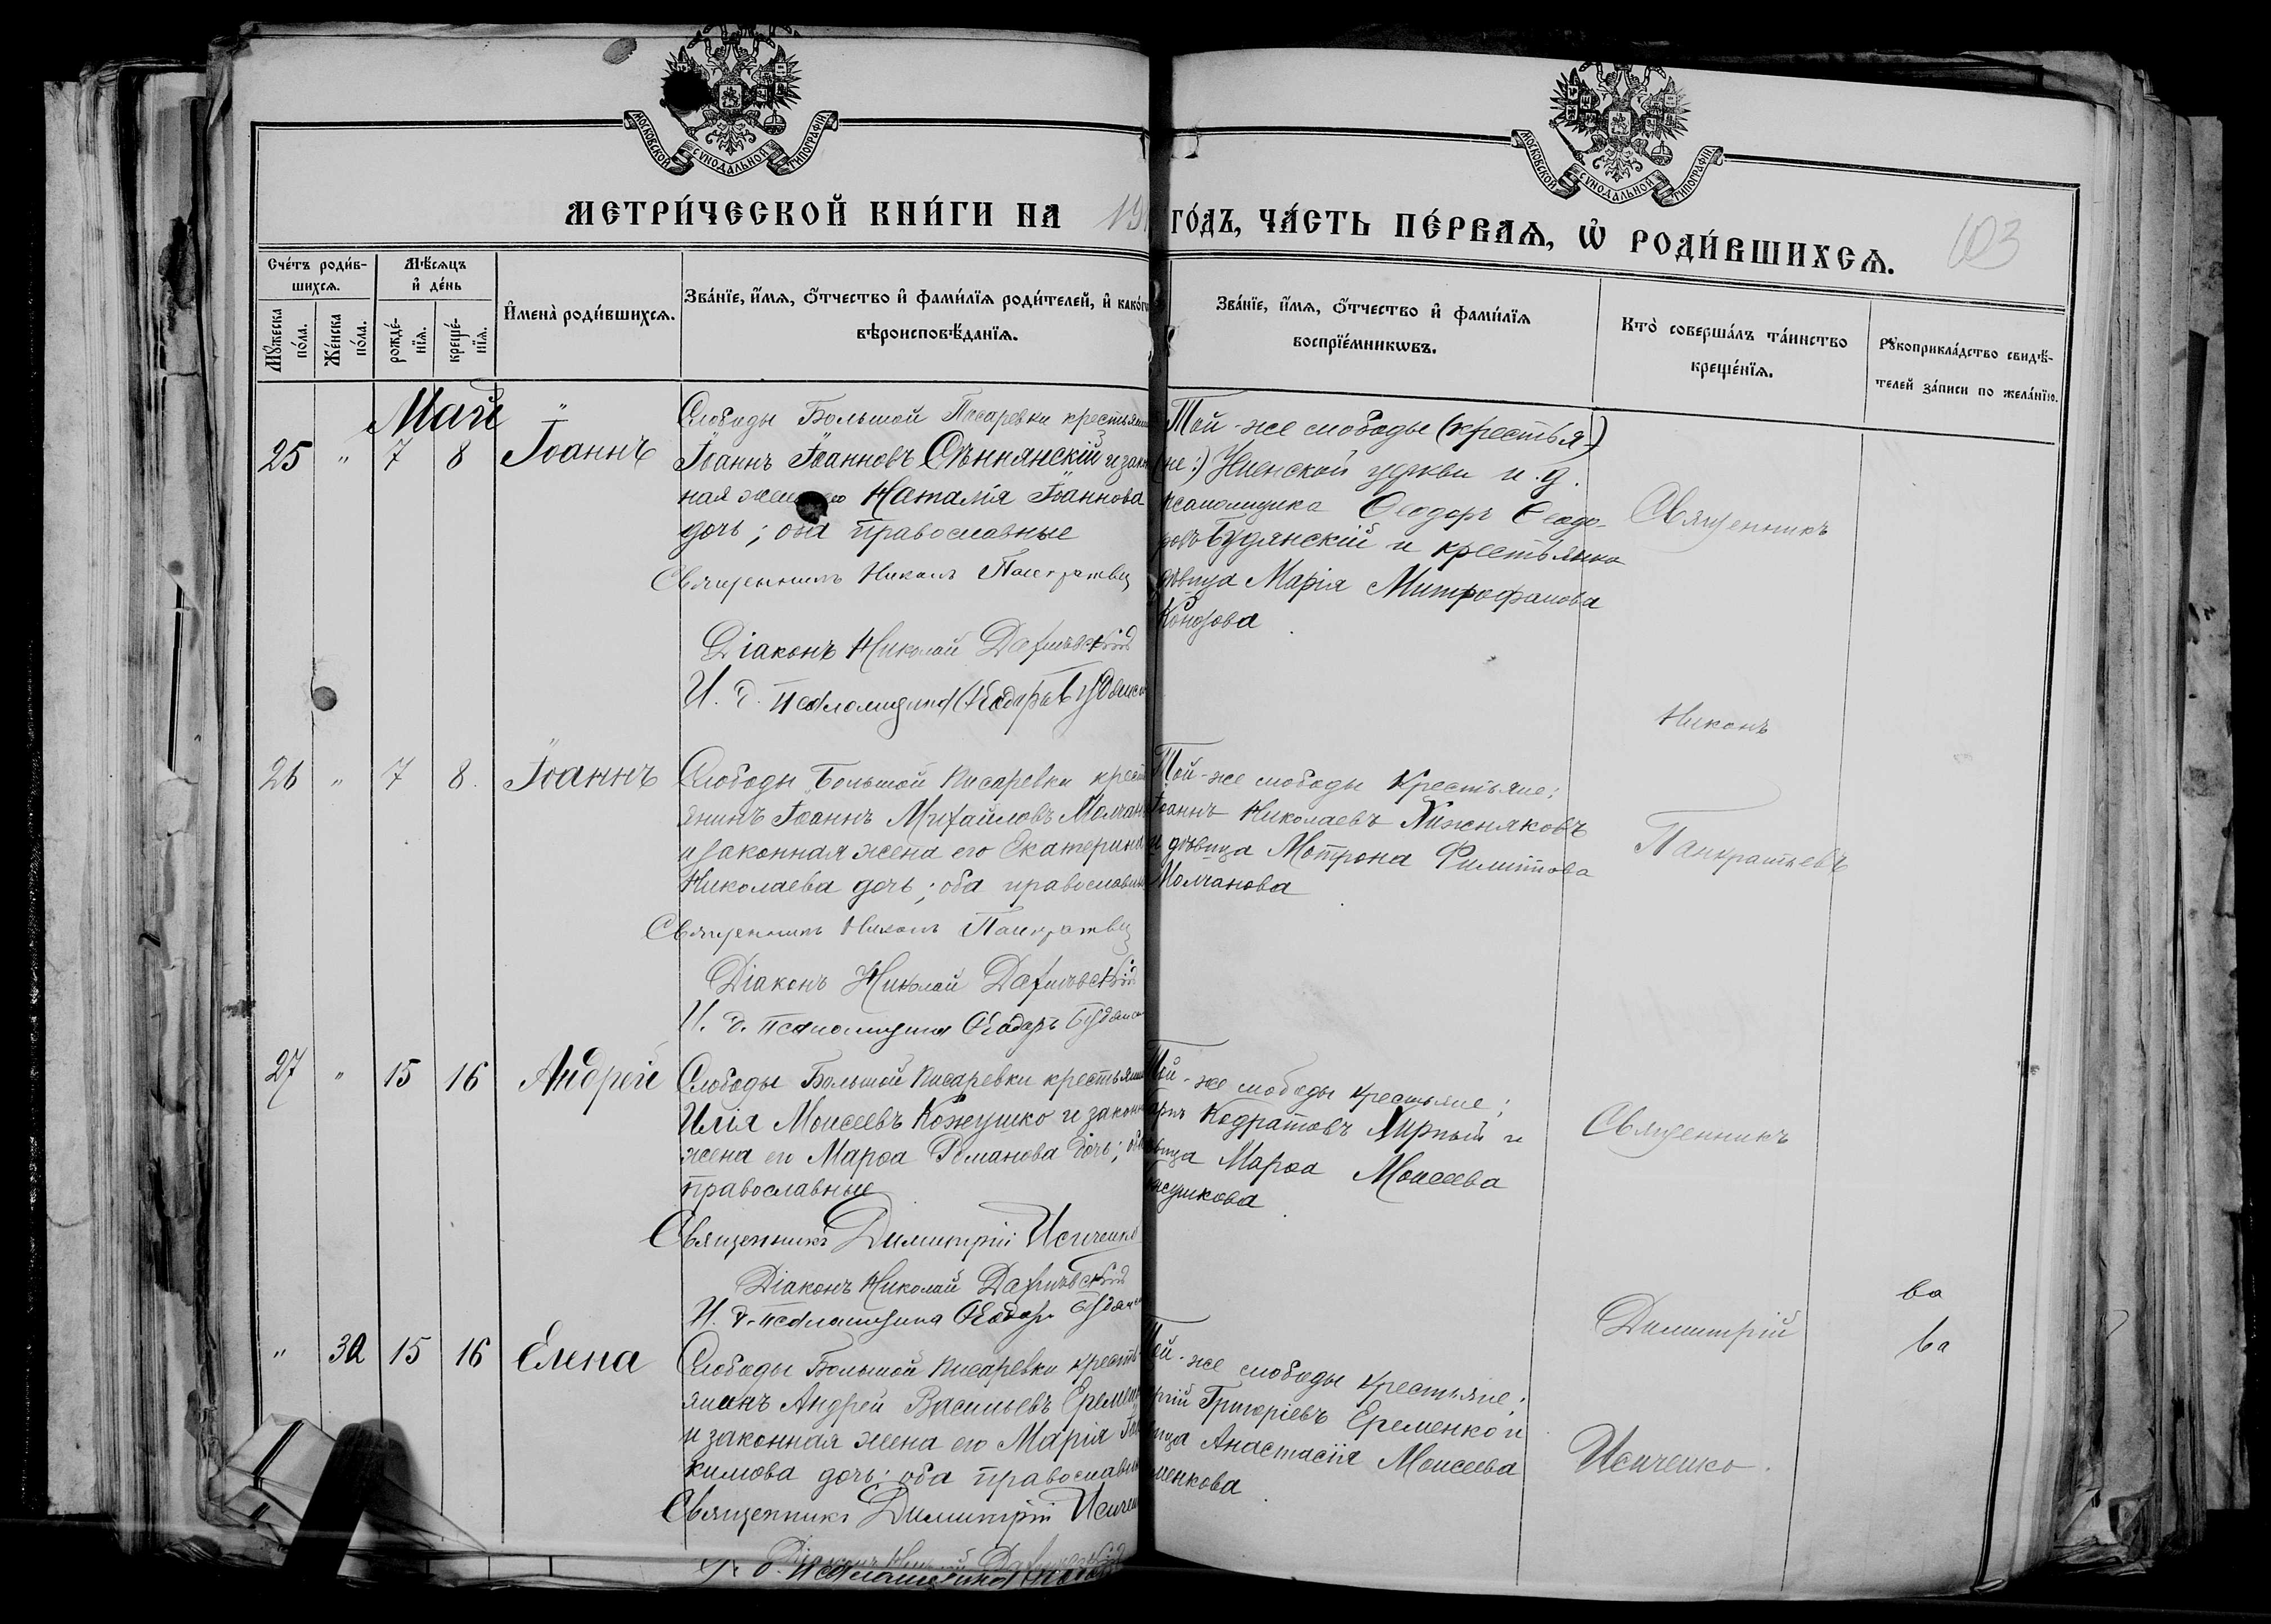 МОСКОВСКОЙ СУНОДАЛЬНОЙ ТИПОГРАФІИ
МОСКОВСКОЙ СУНОДАЛЬНОЙ ТИПОГРАФІИ
МЕТРИ́ЧЕСКОЙ КНИ́ГИ НА 19
ГО́ДЪ, ЧА́СТЬ ПЕ́РВАѦ, Ѡ҆ РОДИ́ВШИХСѦ.
103
Сче́тъ роди́в-
шихсѧ.
Мѣ́сѧцъ
и҆ де́нь
Мꙋ́жеска по́ла.
Же́нска по́ла.
рожде́-
нїѧ.
креще́-
нїѧ.
И҆мена̀ роди́вшихсѧ.
Зва́нїе, и҆́мѧ, ѻ҆́тчество и҆ фами́лїѧ роди́телей, и҆ како́г
вѣроисповѣ́данїѧ.
Зва́нїе, и҆́мѧ, ѻ҆́тчество и҆ фами́лїѧ
воспрїе́мникѡвъ.
Кто̀ соверша́лъ та́инство
креще́нїѧ.
Рꙋкоприкла́дство свидѣ́-
телей за́писи по жела́нїю.
Май
25 " 7 8 Іоаннъ
Слободы Большой Писаревки крестьянин
Іоаннъ Іоанновъ Сѣннянскій и закон
ная жена его Наталія Іоаннова
дочь; оба православные
Священникъ Никонъ Панкратьев
Діаконъ Николай
И. д. псаломщика Ѳеодоръ Будянск
Той-же слободы (крестья-)
(не:) Успенской церкви и. д.
псаломщика Ѳеодоръ Ѳеодо-
ровъ Будянскій и крестьянка
дѣвица Марія Митрофанова
Священникъ
Никонъ
Панкратьевъ
26 " 7 8. Іоаннъ
Слободы Большой Писаревки крест
янинъ Іоаннъ Михайловъ Молчан
и законная жена его Екатерина
Николаева дочь; оба православны
Священникъ Никонъ Панкратьев
Діаконъ Николай
И. д. псаломщика Ѳеодоръ Будянск
Той-же слободы крестьяне:
Іоаннъ Николаевъ Хижняковъ
и дѣвица Мотрона Филиппова
Молчанова
27 " 15 16 Андрей
Слободы Большой Писаревки крестьянин
Илія Моисеевъ Кожушко и законн
жена его Марѳа Романова дочь; оба
православные
Священникъ Димитрій Исиченко
Діаконъ Николай
И. д. псаломщика Ѳеодоръ Будянск
Той-же слободы крестьяне;
Кодратовъ и
вица Марѳа Моисеева
жушкова
Священникъ
Димитрій
Исиченко.
ва
ва
" 30 15 16 Елена
Слободы Большой Писаревки кресть-
янинъ Андрей Васильевъ Еремен
и законная жена его Марія
кимова дочь; оба православны
Священникъ Димитрій Исичен
Діаконъ Николай
И. д. псаломщика
Той-же слободы крестьяне;
ргій Григоріевъ Еременко и
вица Анастасія Моисеева
менкова